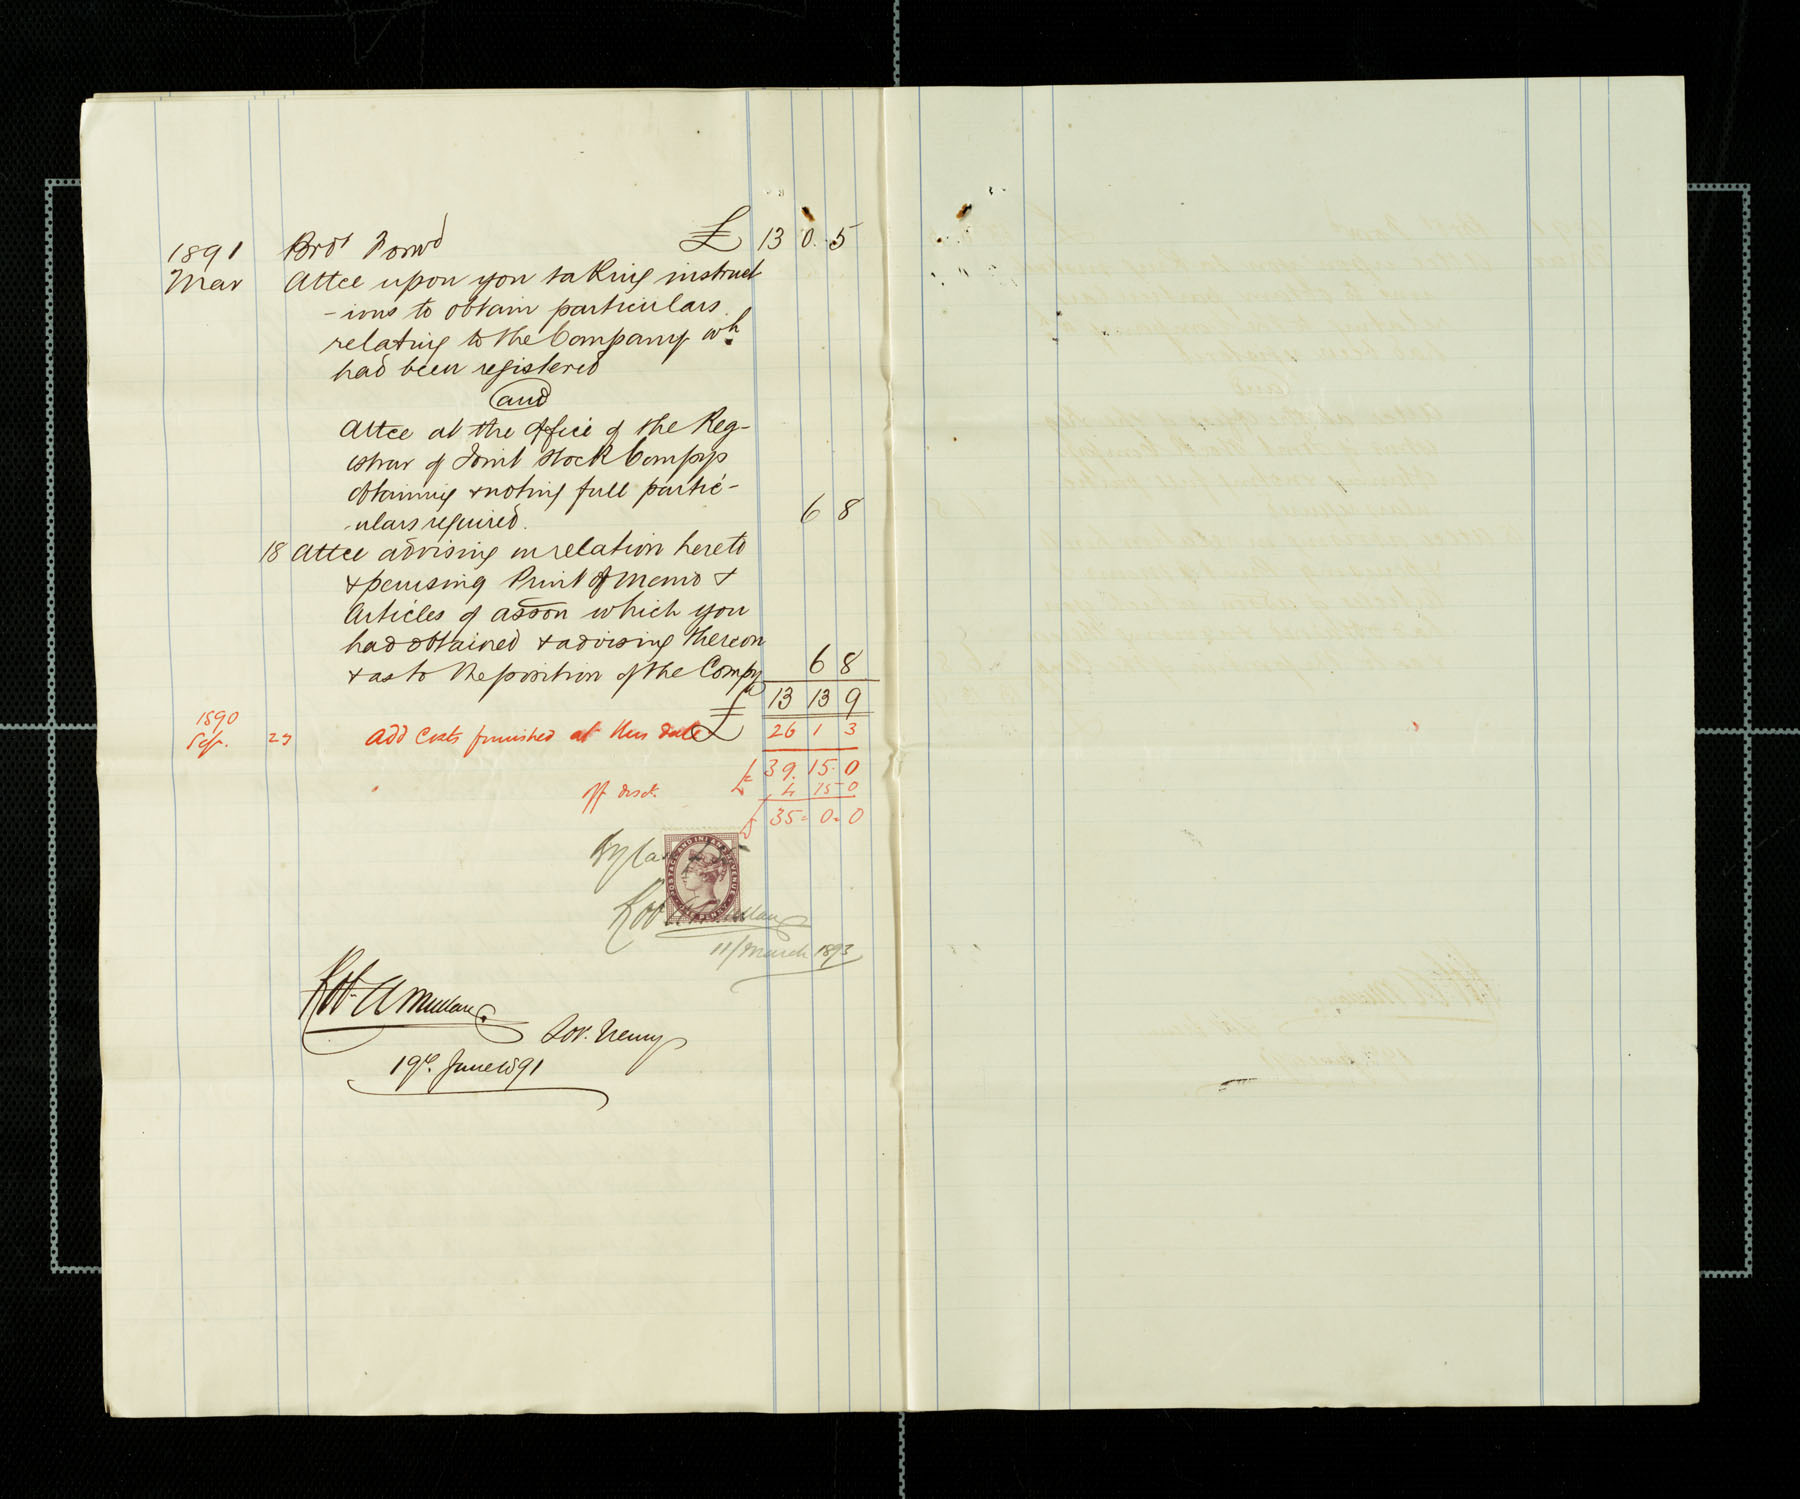 1891 Brot Forwd £ 13 0. 5
Mar Attce upon you taking instruct
- ions to obtain particulars
relating to the Company wh.
had been registered
and
Attce at the Office of the Reg-
istrar of Joint Stock Compys
obtaining & noting full partic-
-ulars required. 6 8
18 Attce advising in relation hereto
& perusing Print of Memo &
Articles of Asson which you
had obtained & advising thereon
& as to the position of the Compy 6 8
£ 13 13 9
1890
Sep. 23 Add Costs furnished at this date 26 1 3
£ 39. 15. 0
off disct. 4 15 0
£ 35 = 0 = 0
POSTAGE AND INLAND REVENUE
Robt
11/March 1893
Robt A Mullan
Sor. Newry
19th June 1891